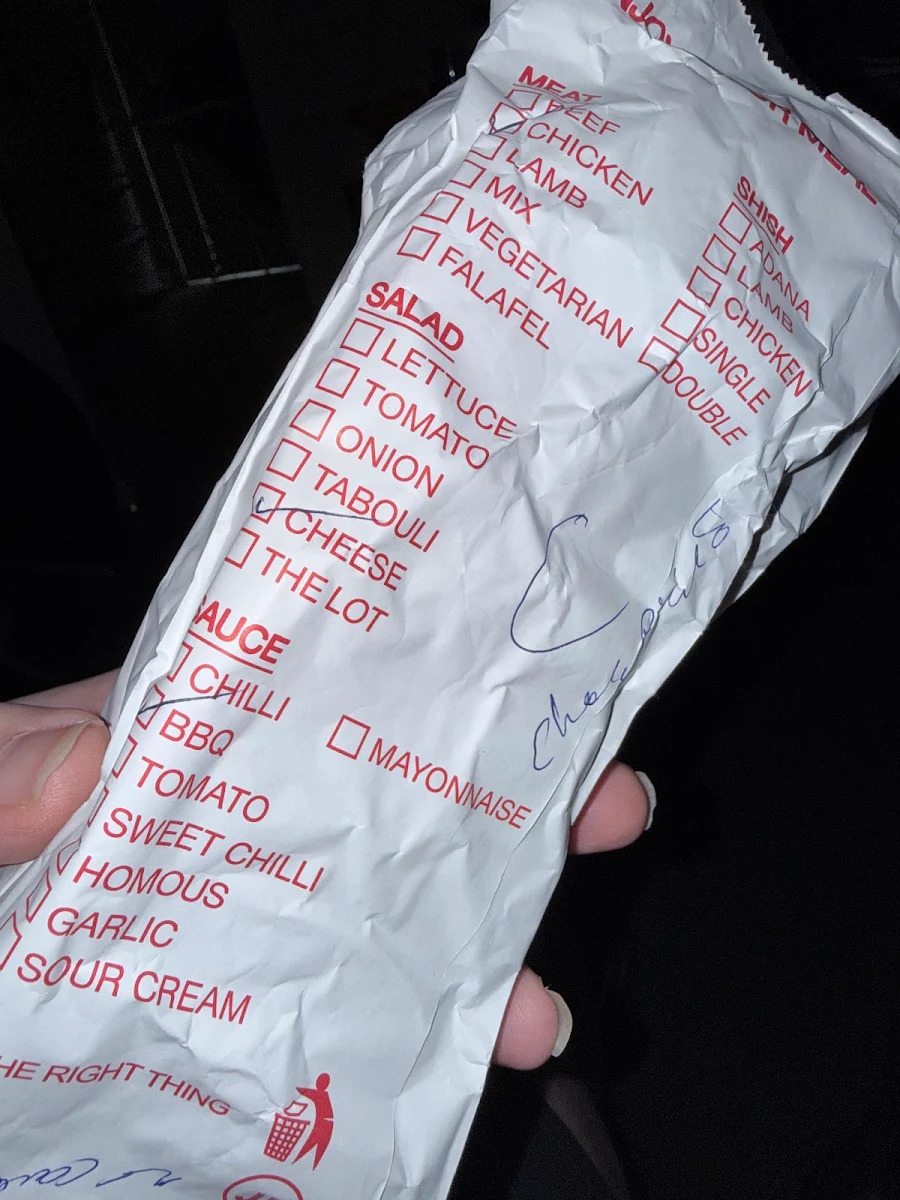 MEAT
BEEF
CHICKEN
LAMB
MIX
VEGETARIAN
FALAFEL
SHISH
ADANA
LAMB
CHICKEN
SINGLE
DOUBLE
SALAD
LETTUCE
TOMATO
ONION
TABOULI
CHEESE
THE LOT
SAUCE
CHILLI
BBQ
TOMATO
SWEET CHILLI
HOMOUS
GARLIC
SOUR CREAM
MAYONNAISE
HE RIGHT THING